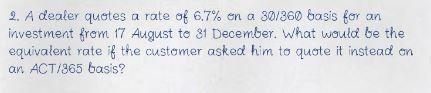 2. A dealer quotes a rate of 6.7% on a 30/360 basis for an
investment from 17 August to 31 December. What would be the
equivalent rate if the customer asked him to quote it instead on
an ACT/365 basis?